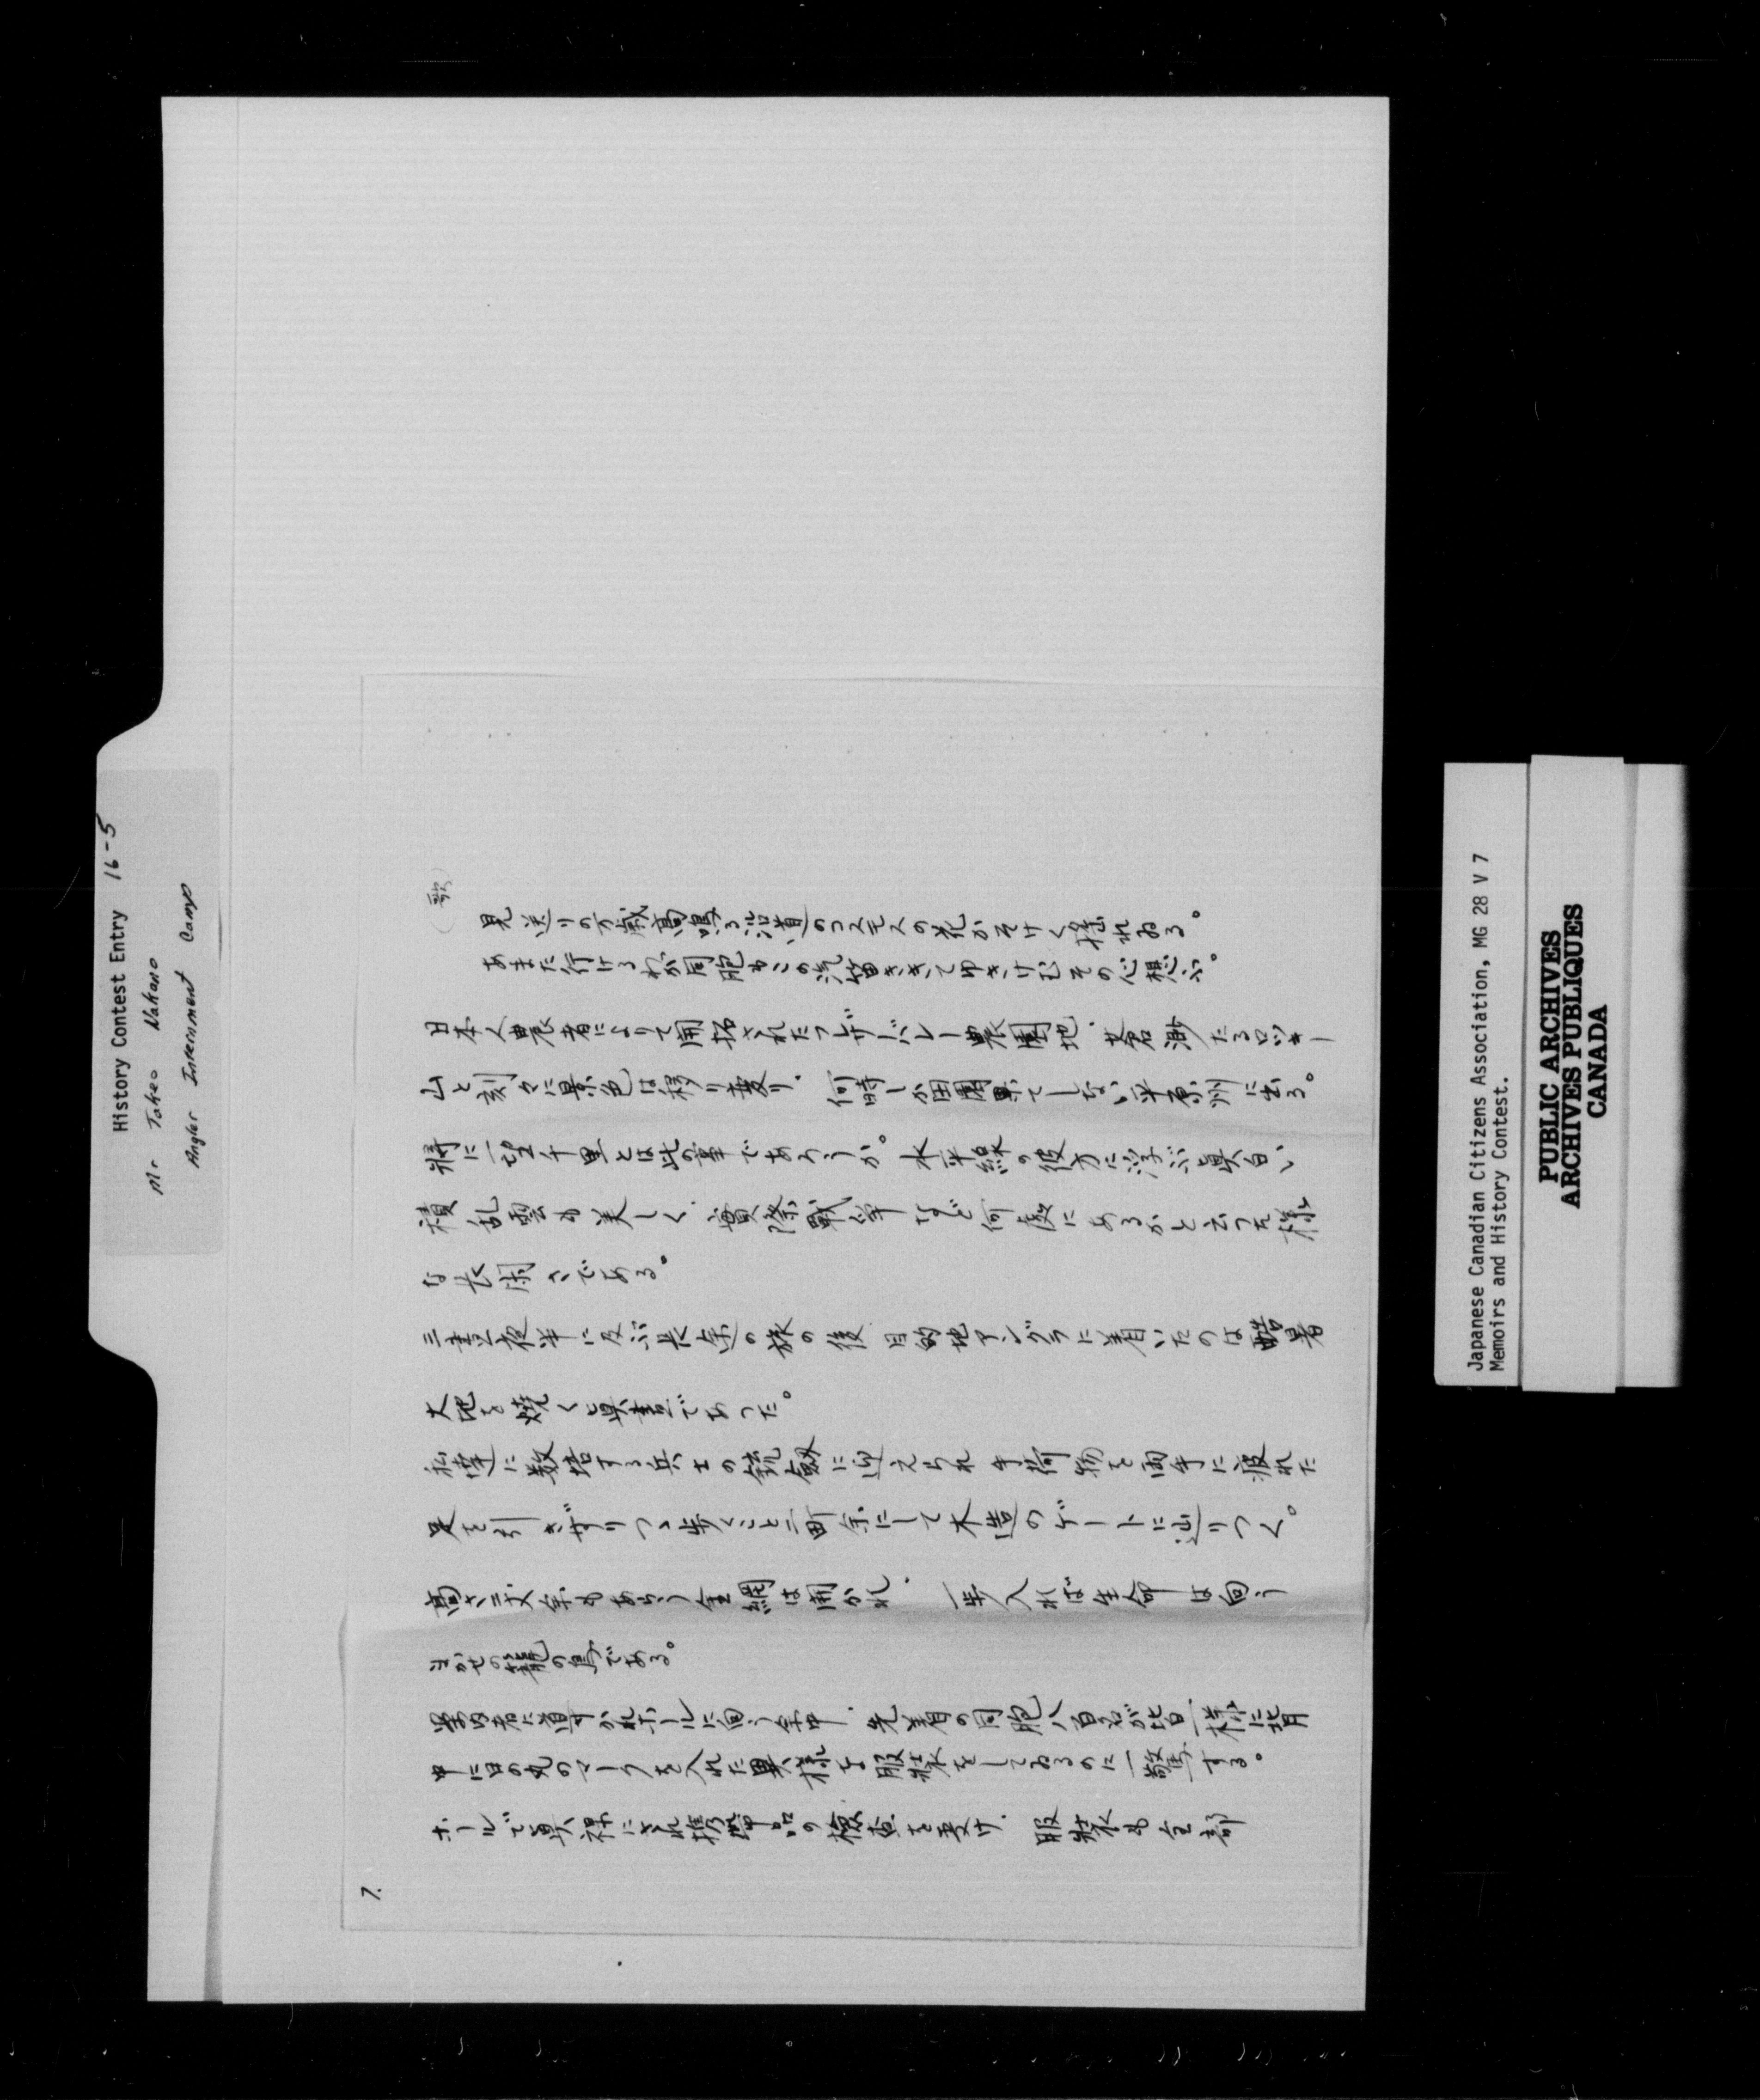 History Contest Entry 16-5
Mr Takeo Nakano
Angler Internment Camp
(歌)
見送りの万歳高鳴る沿道のコスモスの花かそけく揺れゐる。
あまた行けるわが同胞もこの汽笛ききてゆきけむその心想ふ。
日本人農者によりて開拓されたフレザーバレー農園地、峩々たるロッキー
山と刻々に景色は移り変り、何時しか田園果てしない平原州に出る。
将に一望千里とは此の事であろうか。水平線の彼方に浮ぶ真白い
積乱雲も美しく、道徐戦争など何処にあるかと云った様
な長閑さである。
三昼夜半に及ぶ長途の旅の後 目的地アングラに着いたのは酷暑
大地を焼く真昼であった。
私達に数倍する兵士の銃剣に迎えられ手荷物を両手に疲れた
足を引きずりつゝ歩くこと二町余にして木造のゲートに辿りつく。
高さ二丈余もあらう金網は開かれ、一歩入れば生命は向う
まかせの籠の鳥である。
案内者に導かれホールに向う途中、先着の同胞八百名が皆一様に背
中に日の丸のマークを入れた異様な服装をしてゐるのに一驚する。
ホールで真裸にされ携帯品の検査を受け、服装も全部
7.
Japanese Canadian Citizens Association, MG 28 V 7
Memoirs and History Contest.
PUBLIC ARCHIVES
ARCHIVES PUBLIQUES
CANADA